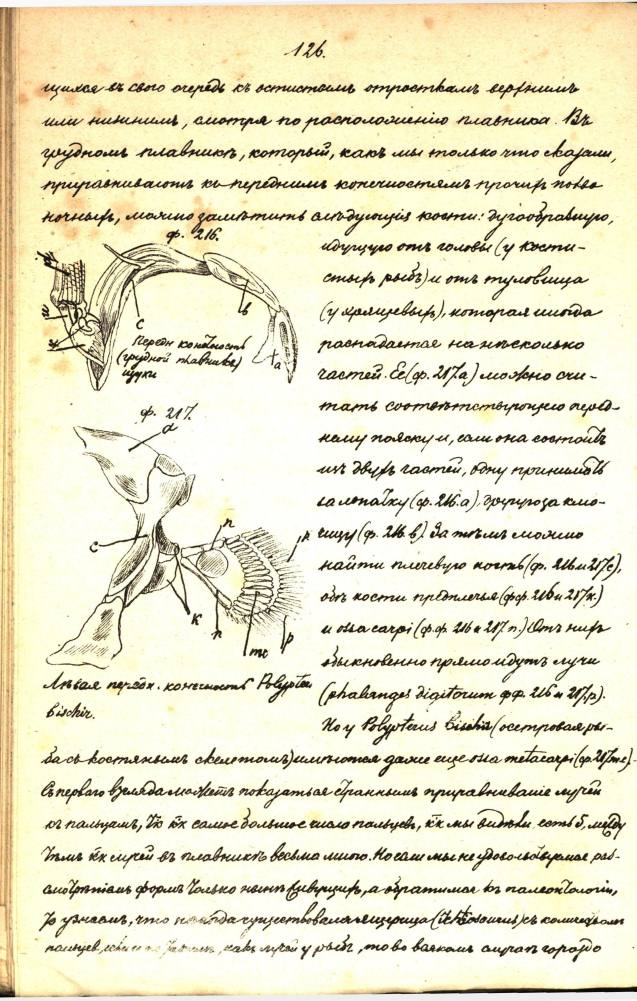 126.
щихся въ свою очередь къ остистымъ отросткамъ верхнимъ
или нижнимъ, смотря по расположенію плавника. Въ
грудномъ плавникѣ, который, какъ мы только что сказали,
приравниваютъ къ переднимъ конечностямъ прочихъ позво
ночныхъ, можно замѣтить слѣдующія кости: дугообразную,
ф. 216.
с
в
а
Передн конечность
(грудной плавникъ)
щуки
ф. 217.
а
с
п
к
п
р
р
mc
Лѣвая передн. конечность Polypterus
Bischir.
идущую отъ головы (у кости-
стыхъ рыбъ) и отъ туловища
(у хрящевыхъ), которая иногда
распадается на нѣсколько
частей. Ее (ф. 217.а) можно счи-
тать соотвѣтствующею перед-
нему пояску и, если она состоитъ
изъ двухъ частей, одну принимать
за лопатку (ф. 216.а), другую за клю-
чицу (ф. 216.в). За тѣмъ можно
найти плечевую кость (ф. 216 и 217с),
обѣ кости предплечья (фф. 216 и 217к)
и ossa carpi (ф.ф. 216 и 217.п.) Отъ нихъ
обыкновенно прямо идутъ лучи
(phalanges digitorum фф. 216 и 217.р).
Но у Polypterus Bischir (осетровая ры-
ба съ костянымъ скелетомъ) имѣются даже еще ossa metacarpi (ф. 217mc).
Съ перваго взгляда можетъ показаться страннымъ приравниваніе лучей
къ пальцамъ, самое большое число пальцевъ, мы видѣли есть 5, между
тѣмъ лучей въ плавникѣ весьма много. Но если мы не удовольствуемся раз-
смотрѣніемъ формъ только нынѣ живущихъ, а обратимся къ палеонтологіи,
то узнаемъ, что когда существовала ящерица (Ichtiosaurus) съ количествомъ
пальцевъ, какъ лучей у рыбъ, то во всякомъ случаѣ гораздо